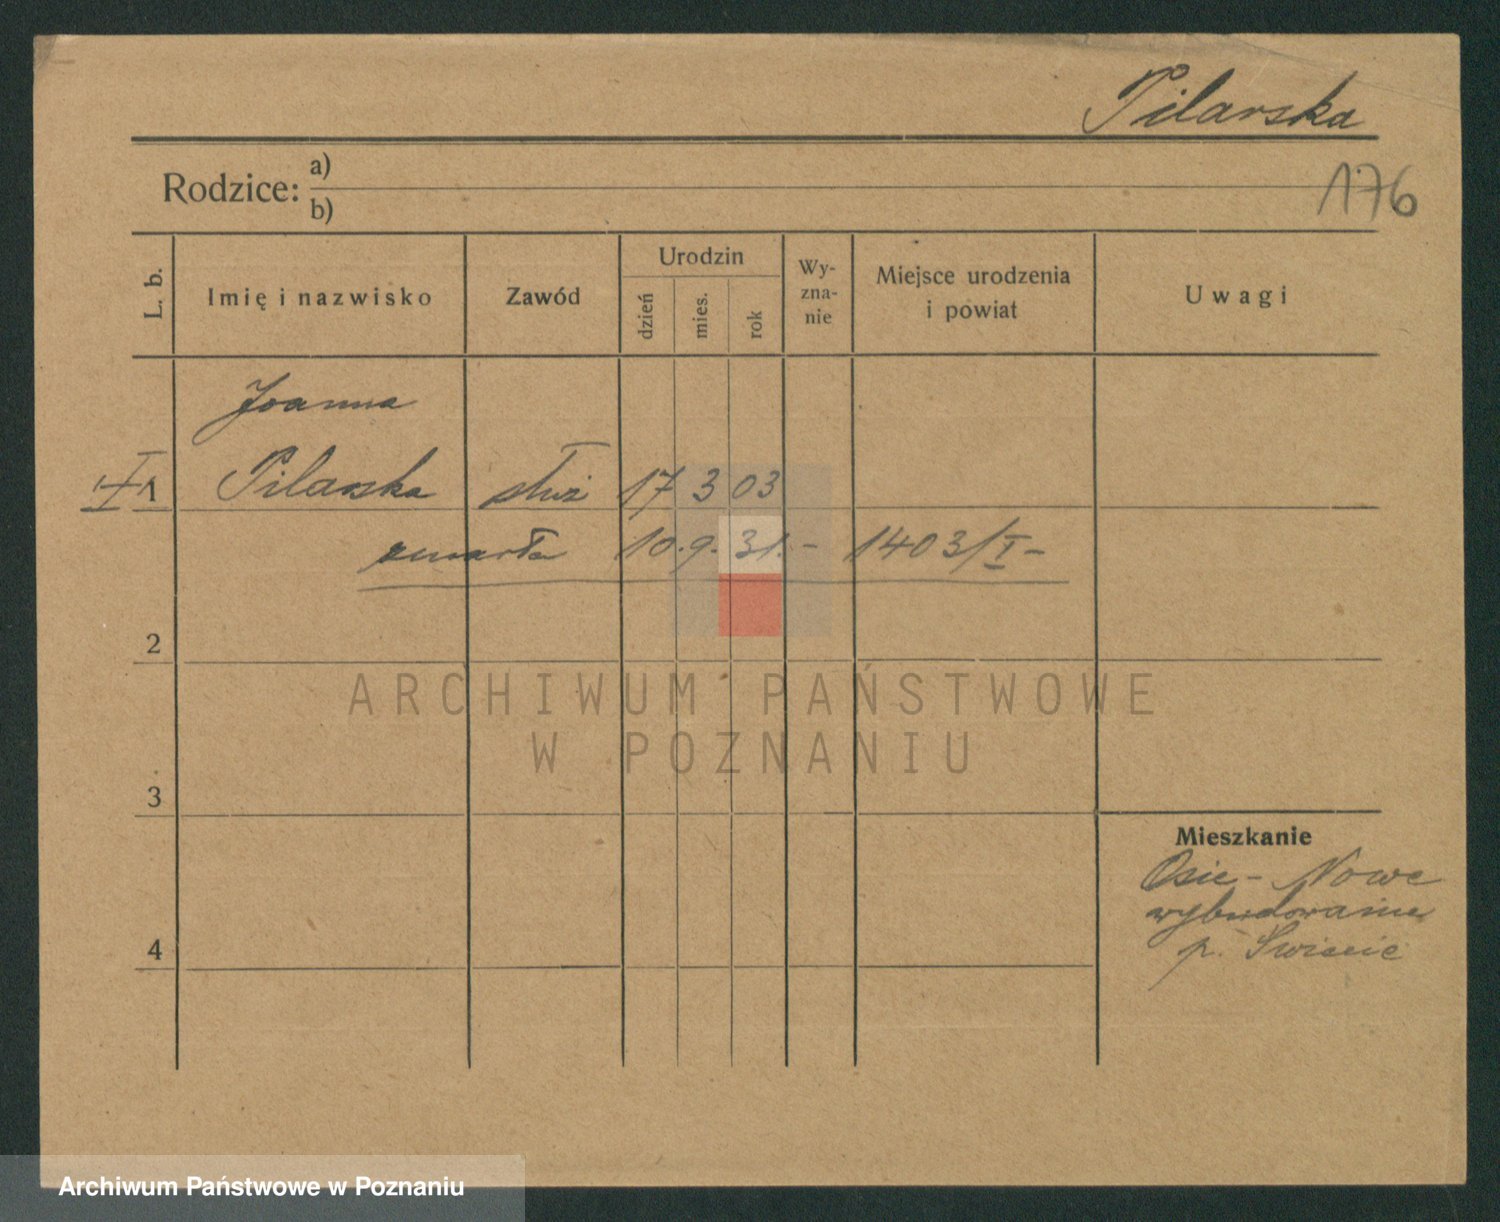 Pilarska
Rodzice: a)
b)
176
L. b.
Imię i nazwisko
Zawód
Urodzin
dzień
mies.
rok
Wy-
zna-
nie
Miejsce urodzenia
i powiat
Uwagi
Joanna
1 Pilarska służ 17 3 03
zmarła 10. 9. 31. – 1403/I –
2
3
4
Mieszkanie
Osie - Nowe
wybudowanie
p. Świecie
ARCHIWUM PAŃSTWOWE
W POZNANIU
Archiwum Państwowe w Poznaniu